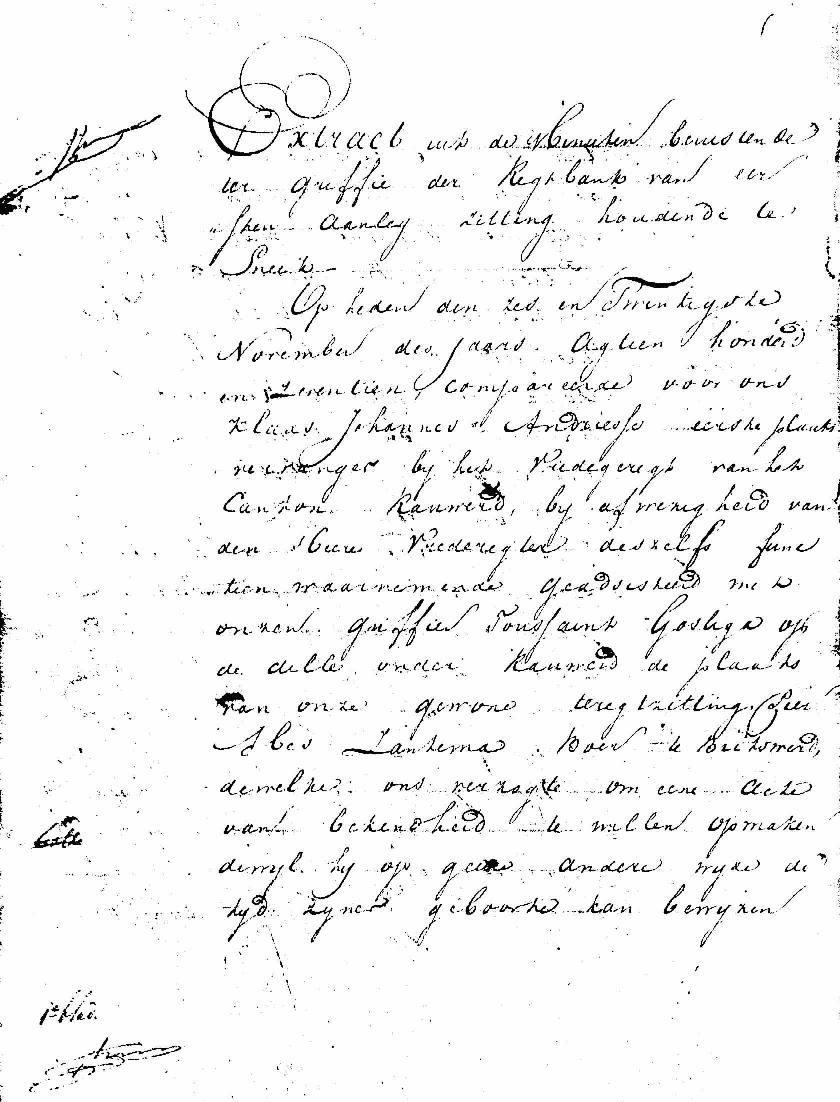 Extract uit de Minuten berustende
ter Griffie der Regtbank van eer
sten Aanleg zitting houdende te
Sneek
Op heden den zes en Twintigste
November des Jaars Agtien honderd
en Zeventien, compareerde voor ons
Klaas Johannes Andriesse eerste plaats
vervanger by het Vredegeregt van het
Canton Rauwerd, by afwezigheid van
den Heere Vrederegter deszelfs func
tien waarnemende geadsisteerd met
onzen Griffier Toussaint Goslega op
de dille onder Rauwerd de plaats
van onze gewone teregtzitting, Pier
Abes Zantema Boer te Britswerd,
dewelke ons verzogte om eene Acte
van bekendheid te willen opmaken
dewyl hy op geene andere wyze de
tyd zyner geboorte kan bewyzen
1e blad